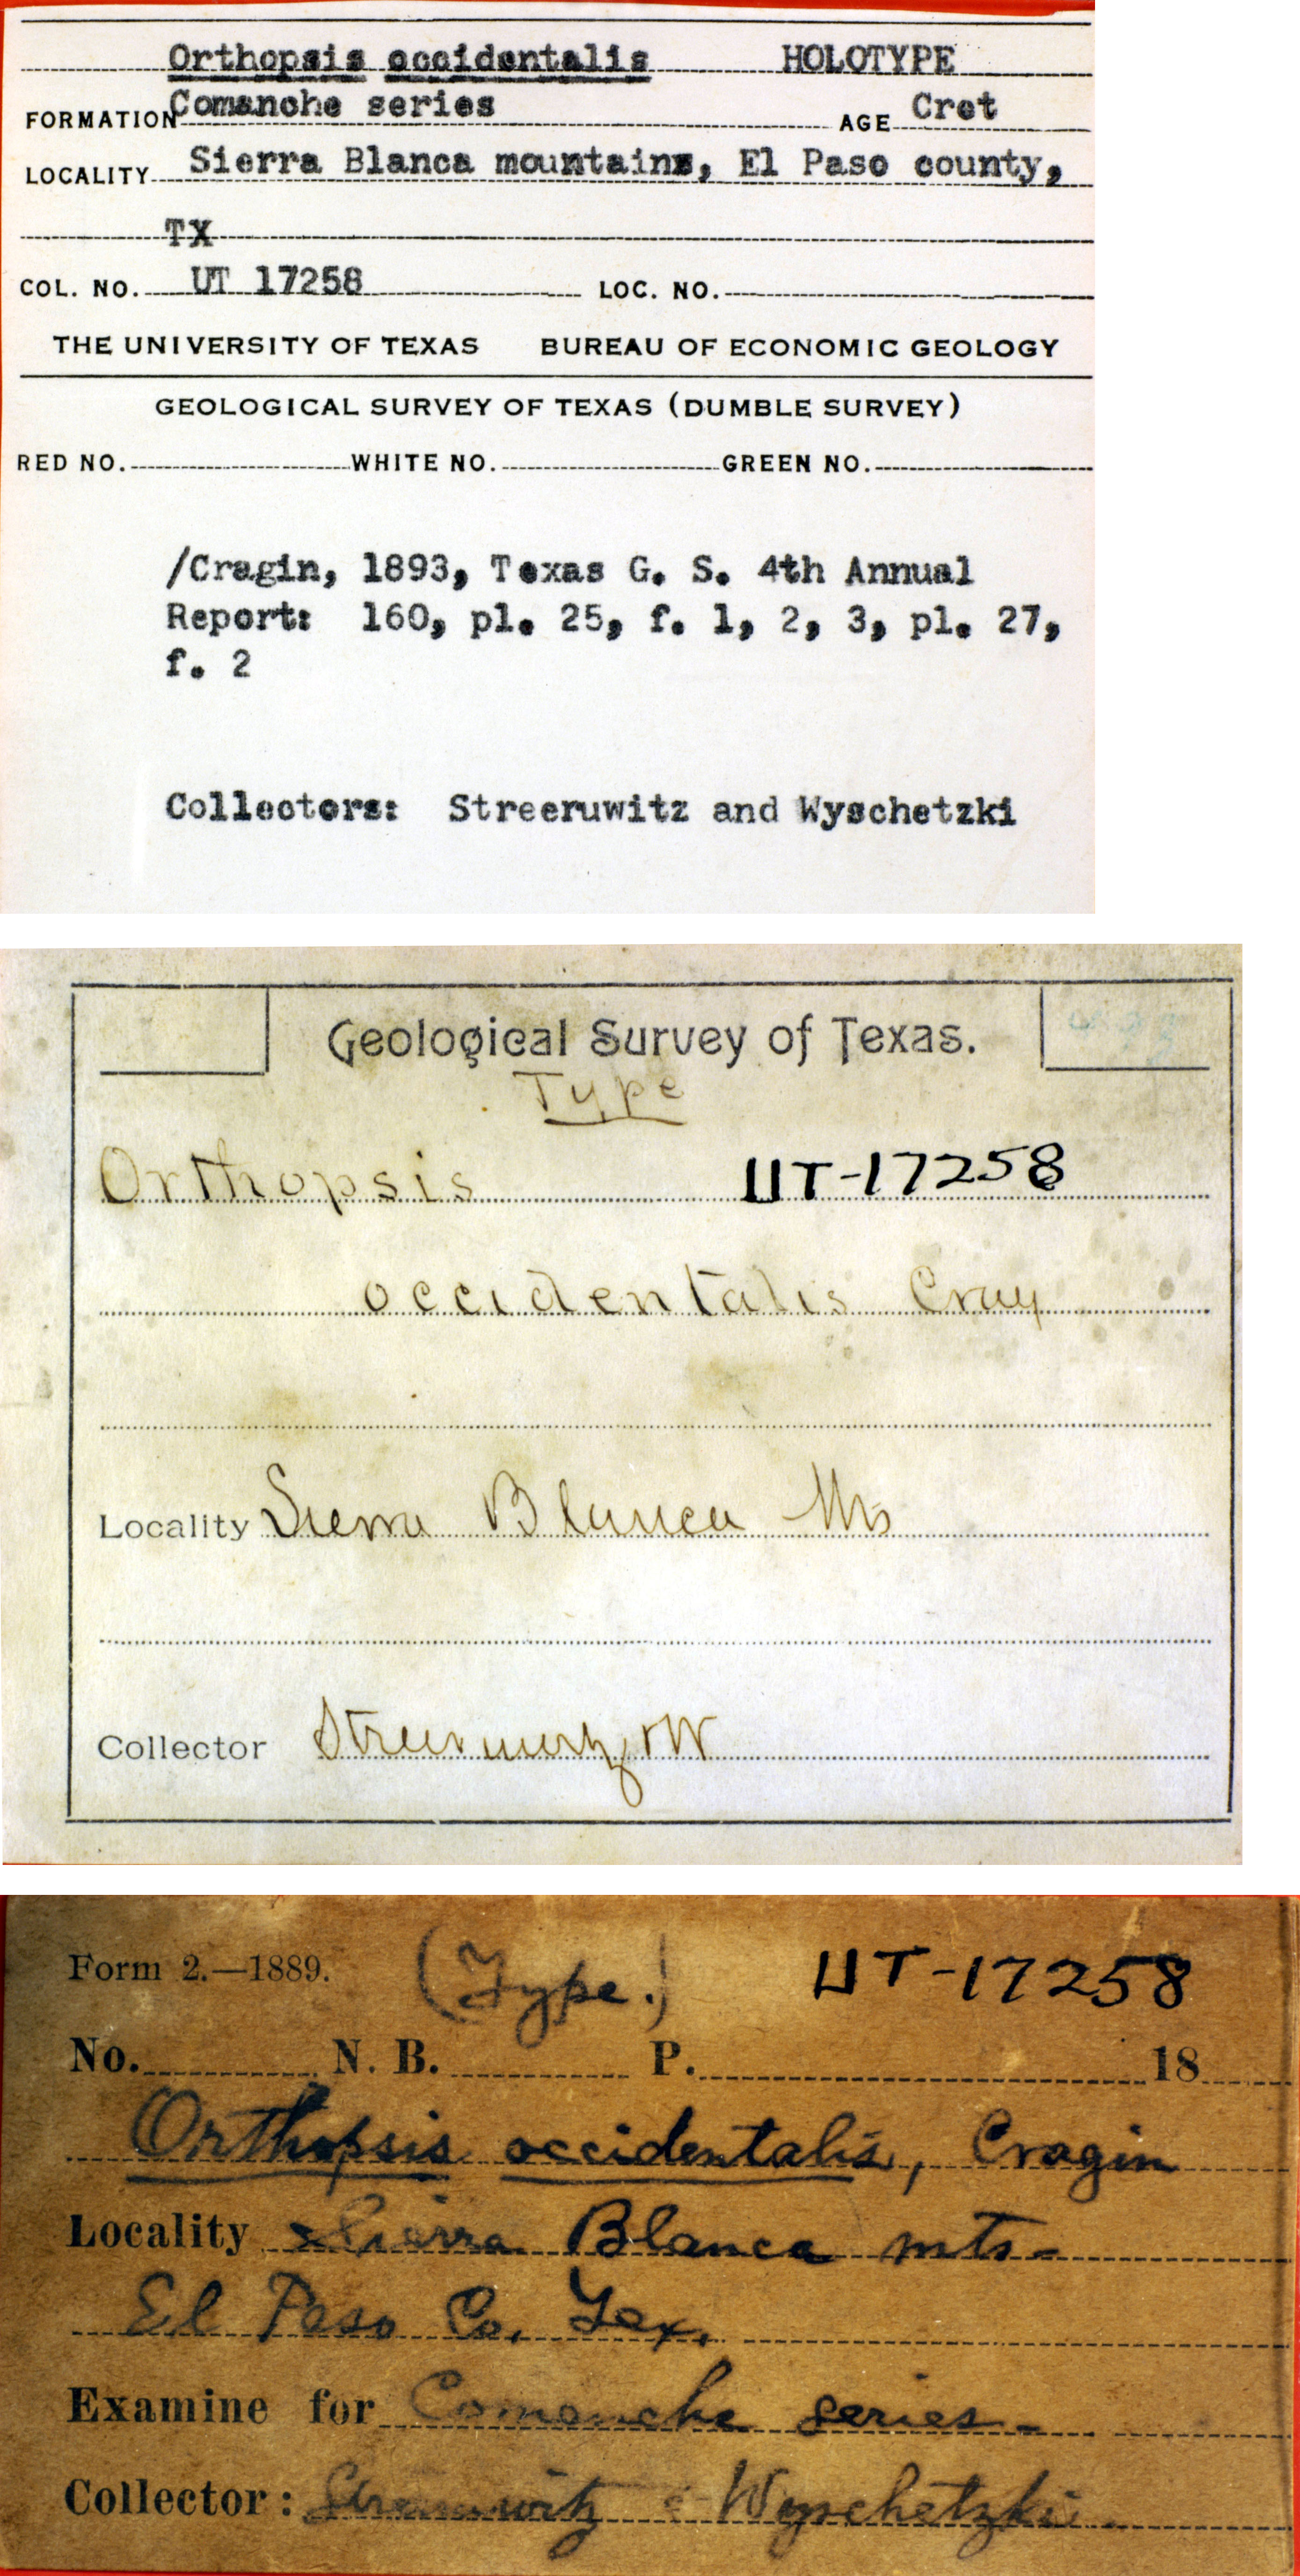 Orthopsis occidentalis HOLOTYPE
FORMATION Comanche series AGE Cret
LOCALITY Sierra Blanca mountains, El Paso county,
TX
COL. NO. UT 17258 LOC. NO.
THE UNIVERSITY OF TEXAS BUREAU OF ECONOMIC GEOLOGY
GEOLOGICAL SURVEY OF TEXAS (DUMBLE SURVEY)
RED NO. WHITE NO. GREEN NO.
/Cragin, 1893, Texas G. S. 4th Annual
Report: 160, pl. 25, f. 1, 2, 3, pl. 27,
f. 2
Collectors: Streeruwitz and Wyschetzki
Geological Survey of Texas.
Type
Orthopsis UT-17258
occidentalis Crag
Locality Sierra Blanca Mts
Collector Streeruwitz + W
Form 2.—1889. (Type.) UT-17258
No. N. B. P. 18
Orthopsis occidentalis, Cragin
Locality Sierra Blanca mts-
El Paso Co. Tex.
Examine for Comanche series-
Collector: Streeruwitz & Wyschetzki.